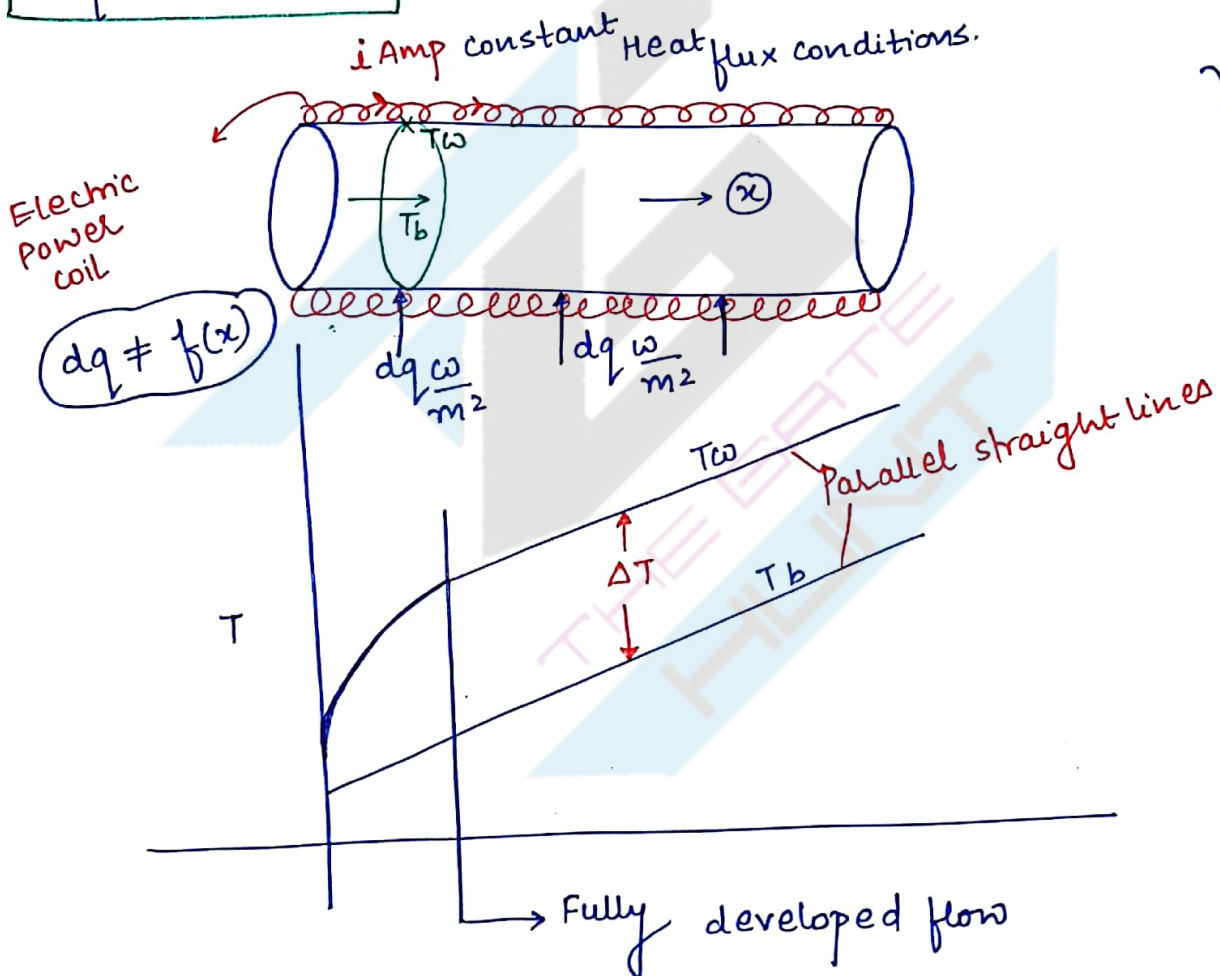 i Amp constant Heat flux conditions.
Tω
Tb
x
Electric
Power
coil
dq ≠ f(x)
dq ω/m2
dq ω/m2
Tω
Parallel straight lines
ΔT
Tb
T
THE GATE
HUNT
Fully developed flow